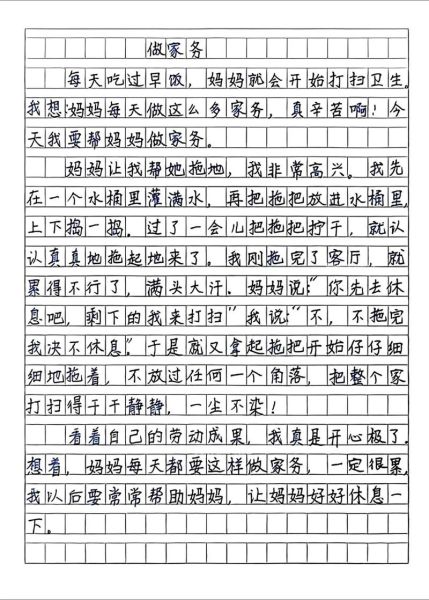 做家务
每天吃过早饭，妈妈就会开始打扫卫生。
我想：妈妈每天做这么多家务，真辛苦啊！今
天我要帮妈妈做家务。
妈妈让我帮她拖地，我非常高兴。我先
在一个水桶里灌满水，再把拖把放进水桶里，
上下捣一捣。过了一会儿把拖把拧干，就认
认真真地拖起地来了。我刚拖完了客厅，就
累得不行了，满头大汗。妈妈说：“你先去休
息吧，剩下的我来打扫”我说：“不，不拖完
我决不休息。”于是就又拿起拖把开始仔仔细
细地拖着，不放过任何一个角落，把整个家
打扫得干干静静，一尘不染！
看着自己的劳动成果，我真是开心极了。
想着，妈妈每天都要这样做家务，一定很累，
我以后要常常帮助妈妈，让妈妈好好休息一
下。